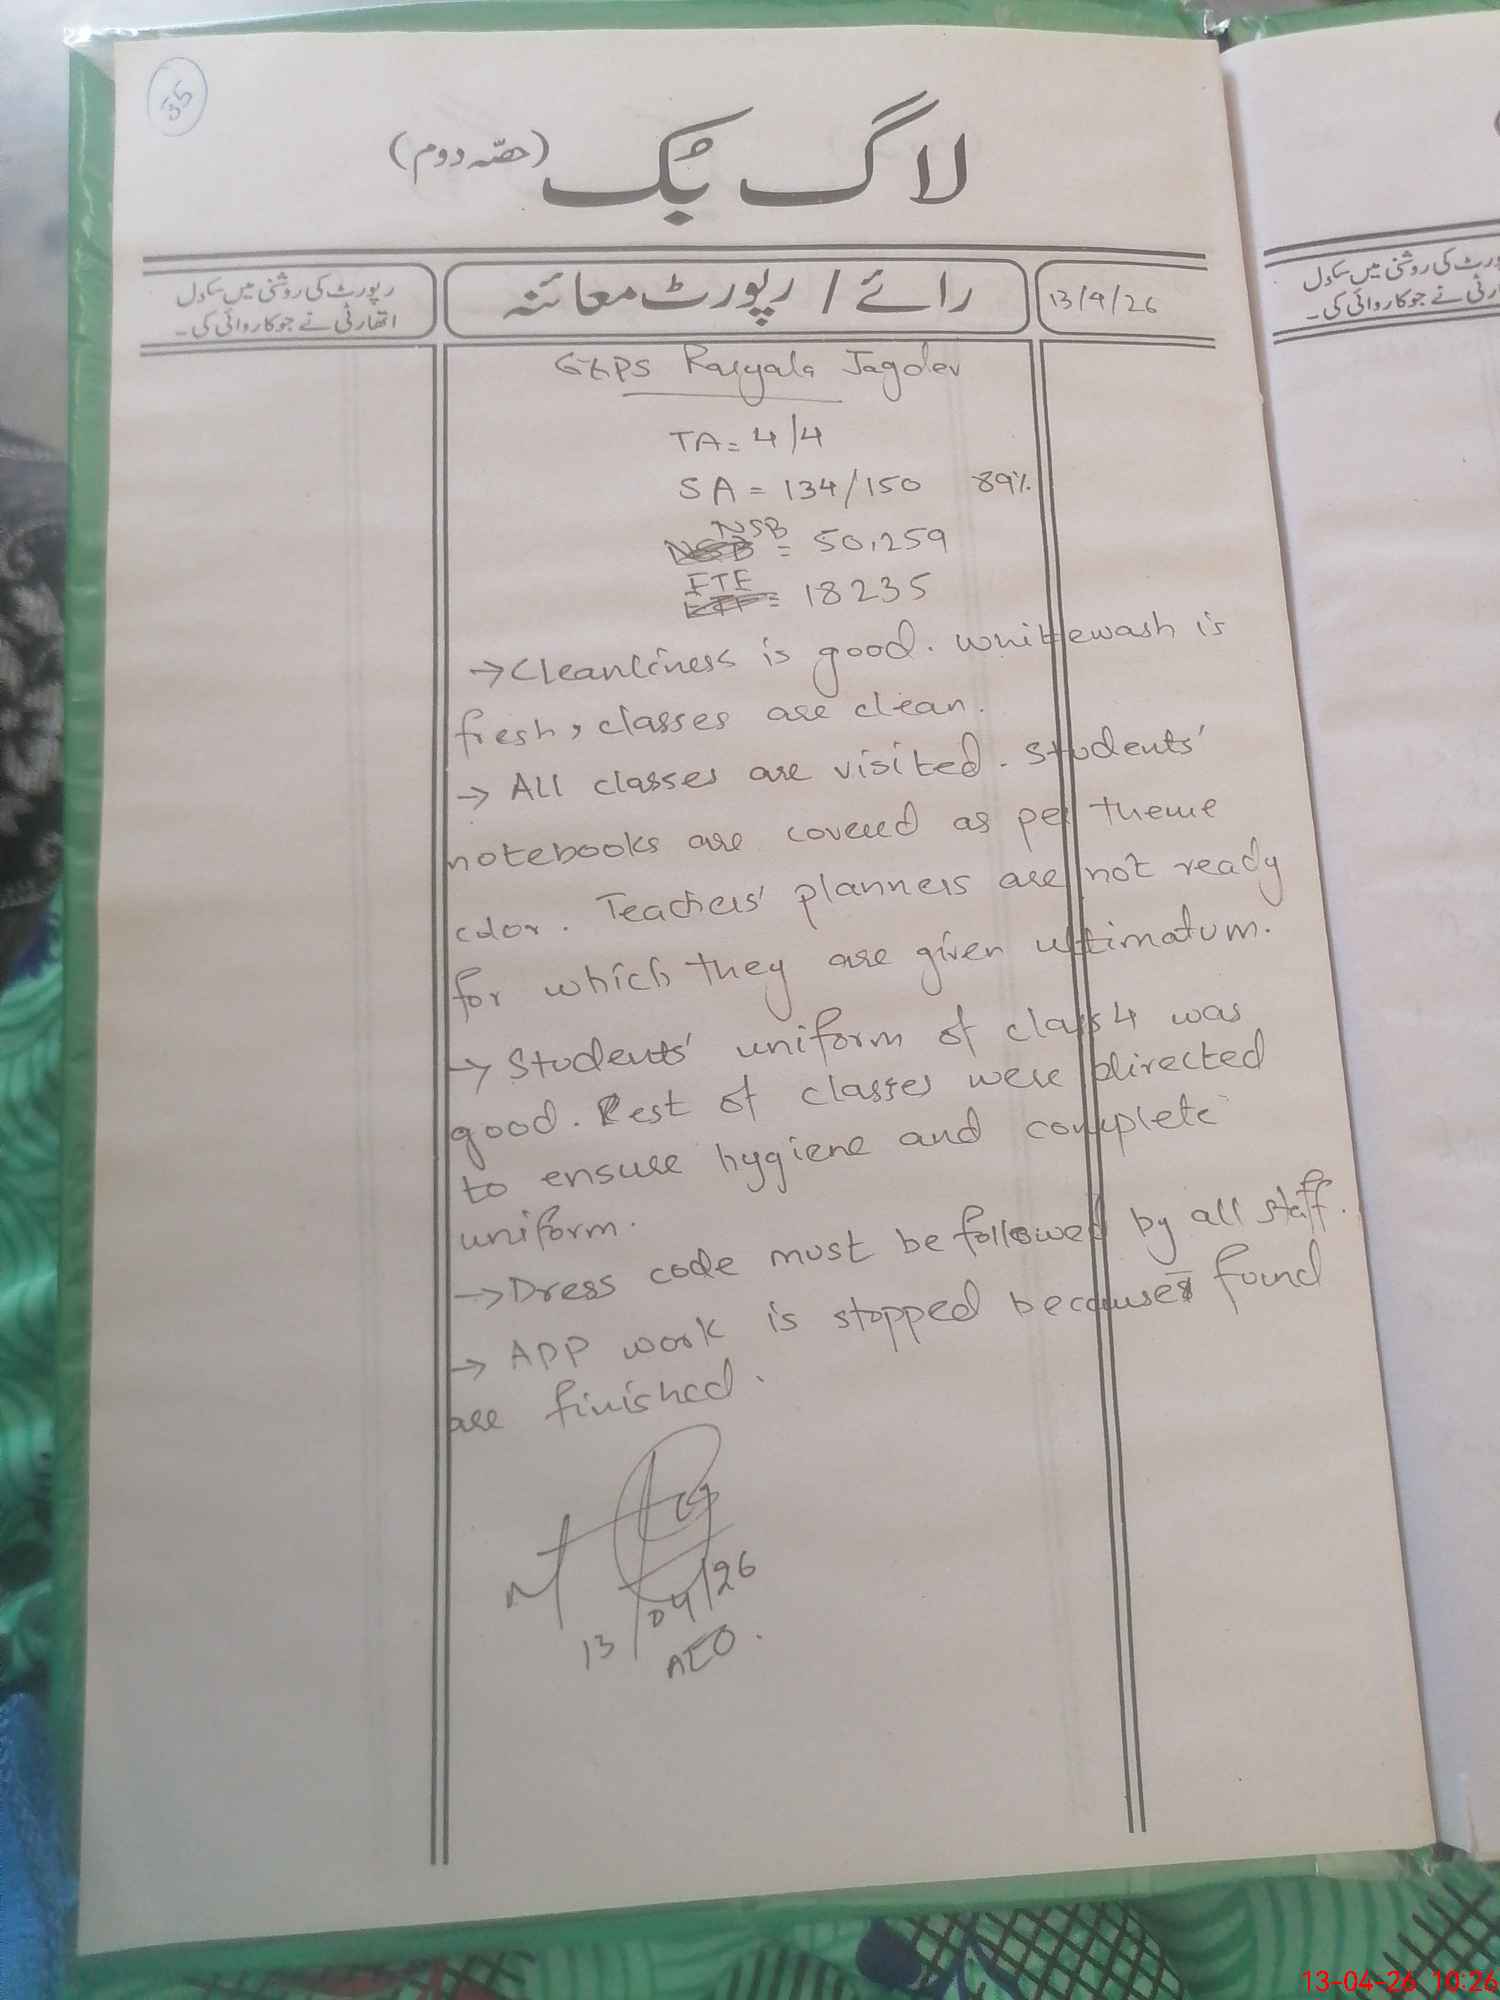 35
لاگ بُک (حصّہ دوم)
رپورٹ کی روشنی میں سکول
اتھارٹی نے جو کاروائی کی۔
رائے / رپورٹ معائنہ
13/4/26
GGPS Raiyala Jagdev
TA = 4/4
SA = 134/150 89%
NSB = 50,259
FTF = 18235
→ Cleanliness is good. whitewash is
fresh, classes are clean.
→ All classes are visited. Students'
notebooks are covered as per theme
color. Teachers' planners are not ready
for which they are given ultimatum.
→ Students' uniform of class 4 was
good. Rest of classes were directed
to ensure hygiene and complete
uniform.
→ Dress code must be followed by all staff.
→ APP work is stopped because found
are finished.
13/04/26
AEO.
رپورٹ کی روشنی میں سکول
نے جو کاروائی کی۔
13-04-26 10:26